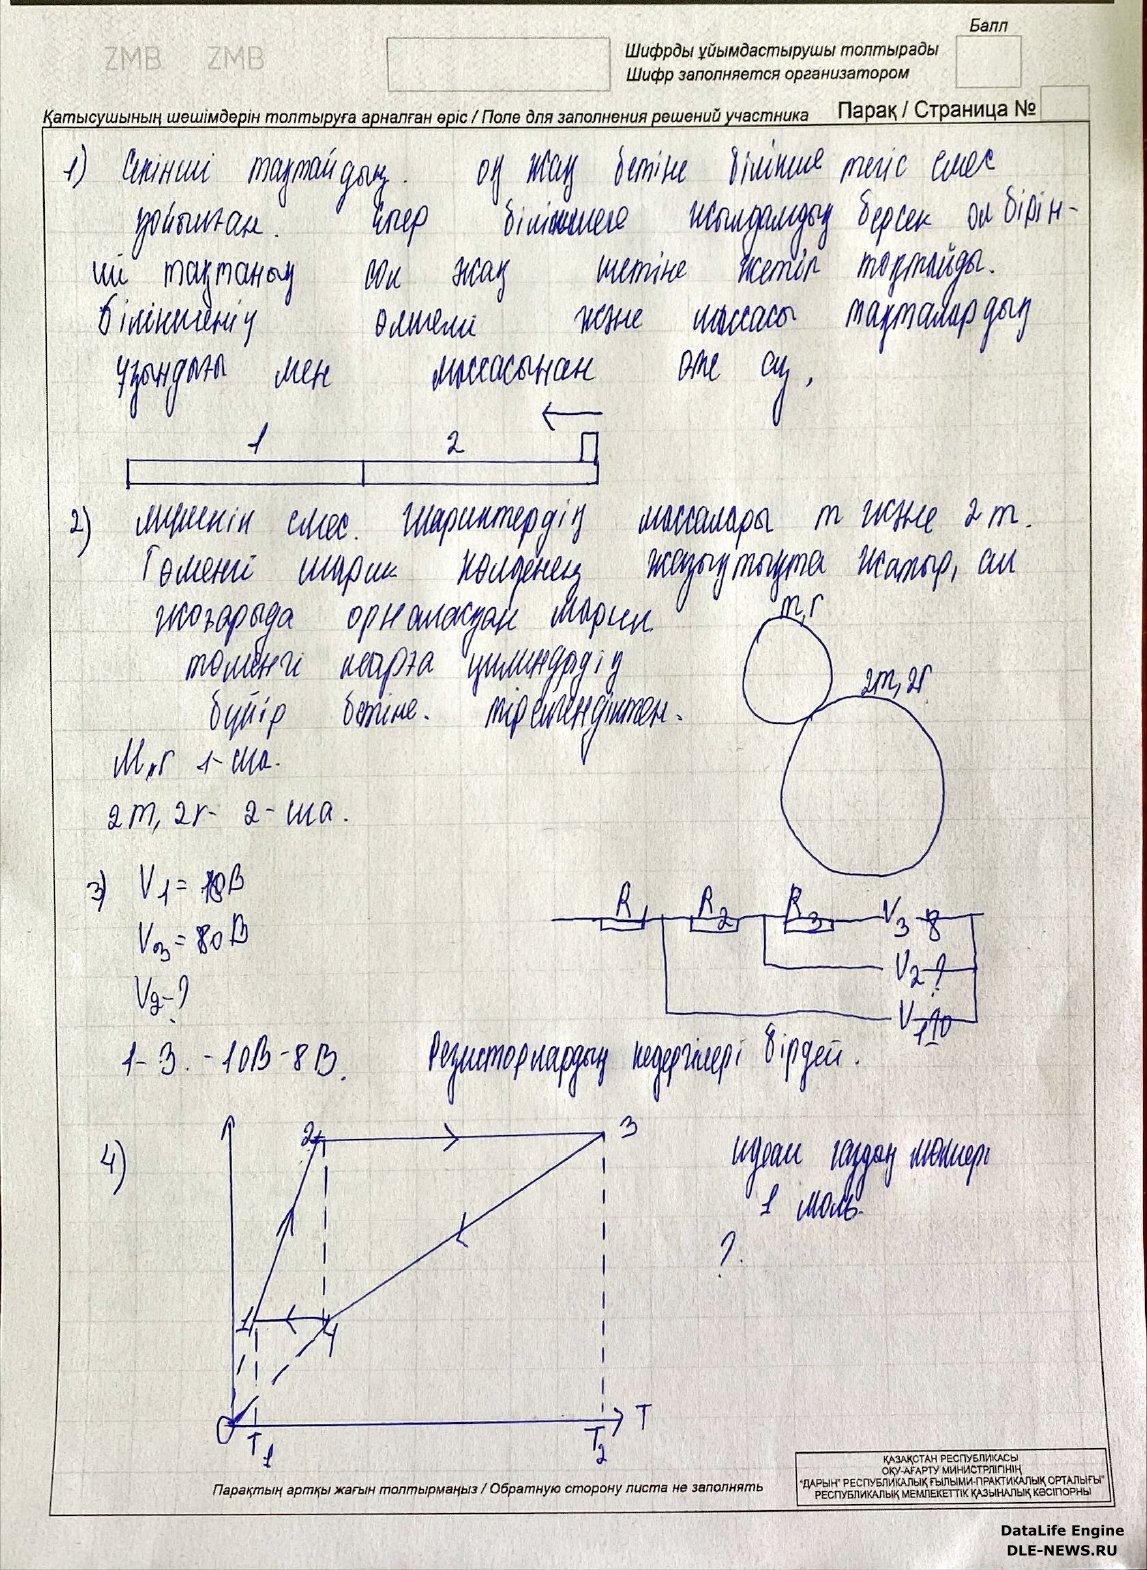 ZMB ZMB
Балл
Шифрды ұйымдастырушы толтырады
Шифр заполняется организатором
Қатысушының шешімдерін толтыруға арналған өріс / Поле для заполнения решений участника
Парақ / Страница №
1) Екінші тақтайдың оң жақ бетіне білікше тегіс емес
ұойылған. Егер білікшеге жылдамдық берсек ол бірін-
ші тақтаның сол жақ шетіне жетіп тоқтайды.
Білікшенің өлшемі және массасы тақталардың
ұзындығы мен массасынан өте аз.
1 2
2) мүмкін емес. Шариктердің массалары m және 2m.
Төменгі шарик көлденең жазықтықта жатыр, ал
жоғарыда орналасқан шарик
m, r
төменгі цилиндрдің
2m, 2r
бүйір бетіне.
m, r 1-ша.
2m, 2r- 2-ша.
3) V1 = 10В
V3 = 80В
V2-?
R1 R2 R3 V3 8
V2 ?
V1 10
1-3. -10В-8В. Резисторлардың кедергілері бірдей.
4) 2 3
идеал газдың мөлшері
1 моль.
?
1 4
0 T1 T2 T
ҚАЗАҚСТАН РЕСПУБЛИКАСЫ
ОҚУ-АҒАРТУ МИНИСТРЛІГІНІҢ
"ДАРЫН" РЕСПУБЛИКАЛЫҚ ҒЫЛЫМИ-ПРАКТИКАЛЫҚ ОРТАЛЫҒЫ"
РЕСПУБЛИКАЛЫҚ МЕМЛЕКЕТТІК ҚАЗЫНАЛЫҚ КӘСІПОРНЫ
Парақтың артқы жағын толтырмаңыз / Обратную сторону листа не заполнять
DataLife Engine
DLE-NEWS.RU